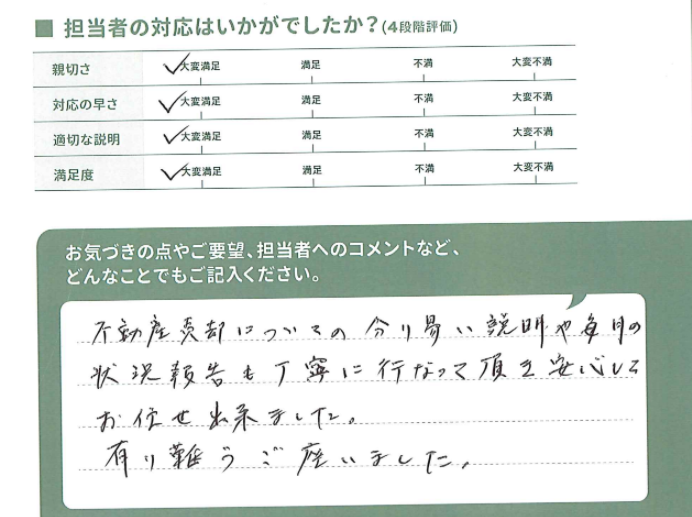 ■ 担当者の対応はいかがでしたか？(4段階評価)
親切さ 大変満足 満足 不満 大変不満
対応の早さ 大変満足 満足 不満 大変不満
適切な説明 大変満足 満足 不満 大変不満
満足度 大変満足 満足 不満 大変不満
お気づきの点やご要望、担当者へのコメントなど、
どんなことでもご記入ください。
不動産売却についての分り易い説明や毎月の
状況報告も丁寧に行なって頂き安心して
お任せ出来ました。
有り難うご座いました。